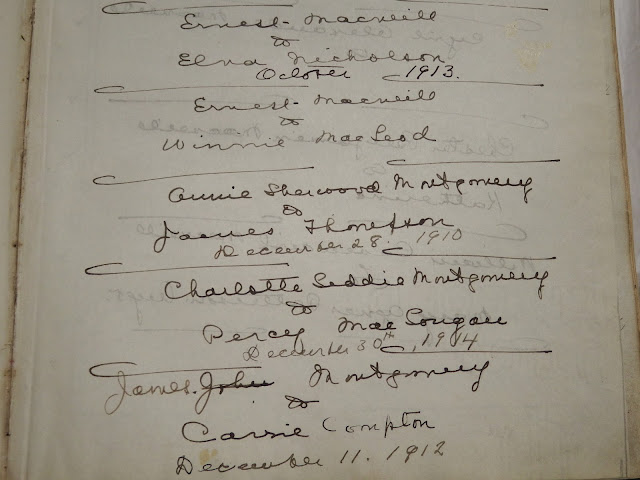 Ernest Macneill
to
Elva Nicholson
October 1913.
Ernest Macneill
to
Winnie MacLeod
Annie Sherwood Montgomery
to
James Thompson
December 28. 1910
Charlotte Seddie Montgomery
to
Percy Mac
December 30th, 1914
James. John Montgomery
to
Carrie Compton
December 11. 1912